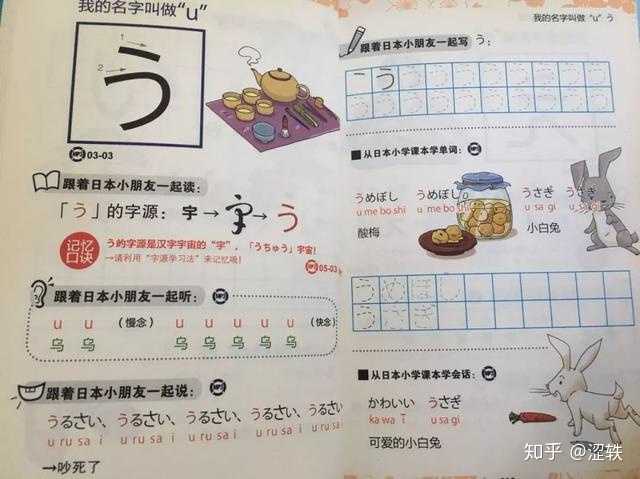 我的名字叫做“u”
1→
2→
う
MP3 03-03
跟着日本小朋友一起读:
「う」的字源: 宇→宇→う
记忆口诀
う的字源是汉字宇宙的“宇”，「うちゅう」宇宙!
→请利用“字源学习法”来记忆哦!
MP3 05-03
跟着日本小朋友一起听: MP3
u u (慢念) u u u u u (快念)
乌 乌 乌 乌 乌 乌 乌
跟着日本小朋友一起说: MP3
うるさい、うるさい、うるさい、うるさい、うるさい
u ru sa i u ru sa i u ru sa i u ru sa i u ru sa i
→吵死了
我的名字叫做 “u” う
跟着日本小朋友一起写 う:
う
从日本小学课本学单词: MP3
うめぼし うめぼし うさぎ うさぎ
u me bo shi u me bo shi u sa gi u sa gi
酸梅 小白兔
从日本小学课本学会话: MP3
かわいい うさぎ
ka wa ī u sa gi
可爱的小白兔
知乎 @涩轶